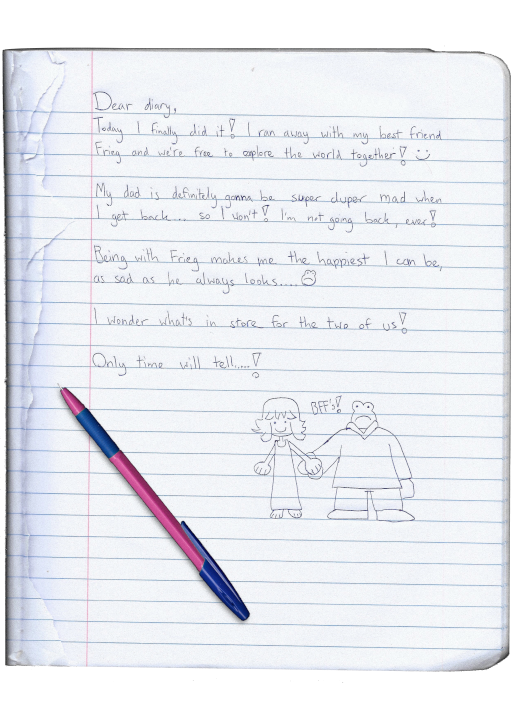 Dear diary,
Today I finally did it! I ran away with my best friend
Frieg and we're free to explore the world together! :)
My dad is definitely gonna be super duper mad when
I get back... so I won't! I'm not going back, ever!
Being with Frieg makes me the happiest I can be,
as sad as he always looks....
I wonder what's in store for the two of us!
Only time will tell....!
BFF's!